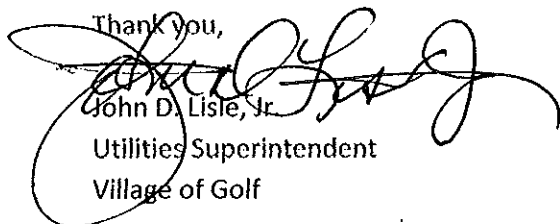 Thank you,
John D. Lisle, Jr.
Utilities Superintendent
Village of Golf